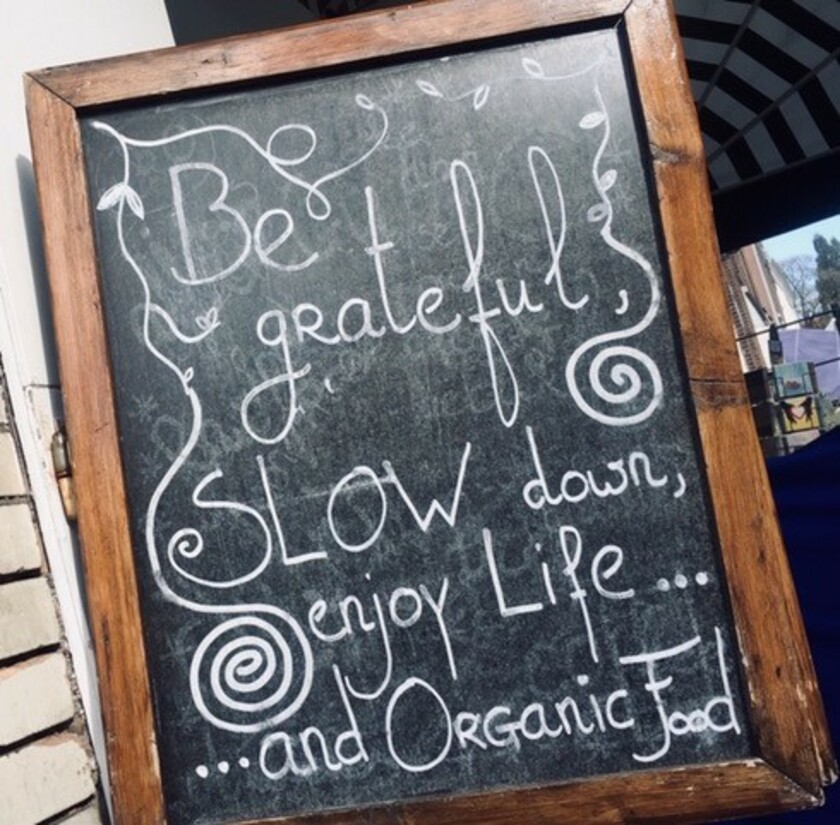 Be
grateful,
SLOW down,
enjoy Life...
...and ORGanic Food